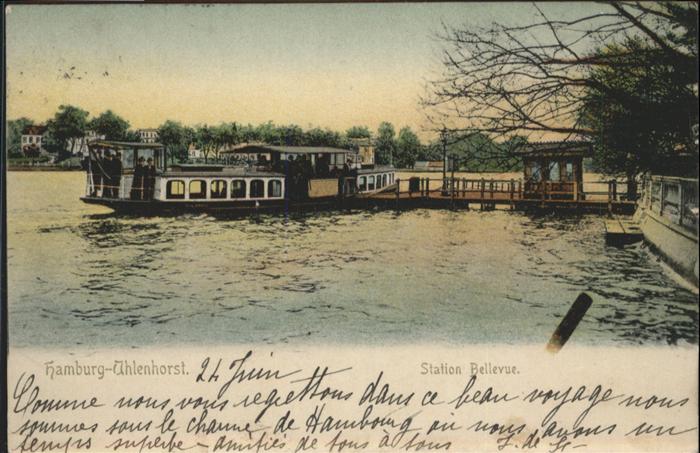 Hamburg-Uhlenhorst. 24 Juin Station Bellevue.
Comme nous vous regrettons dans ce beau voyage nous
sommes sous le charme de Hambourg où nous avons un
temps superbe - amitiés de tous à tous